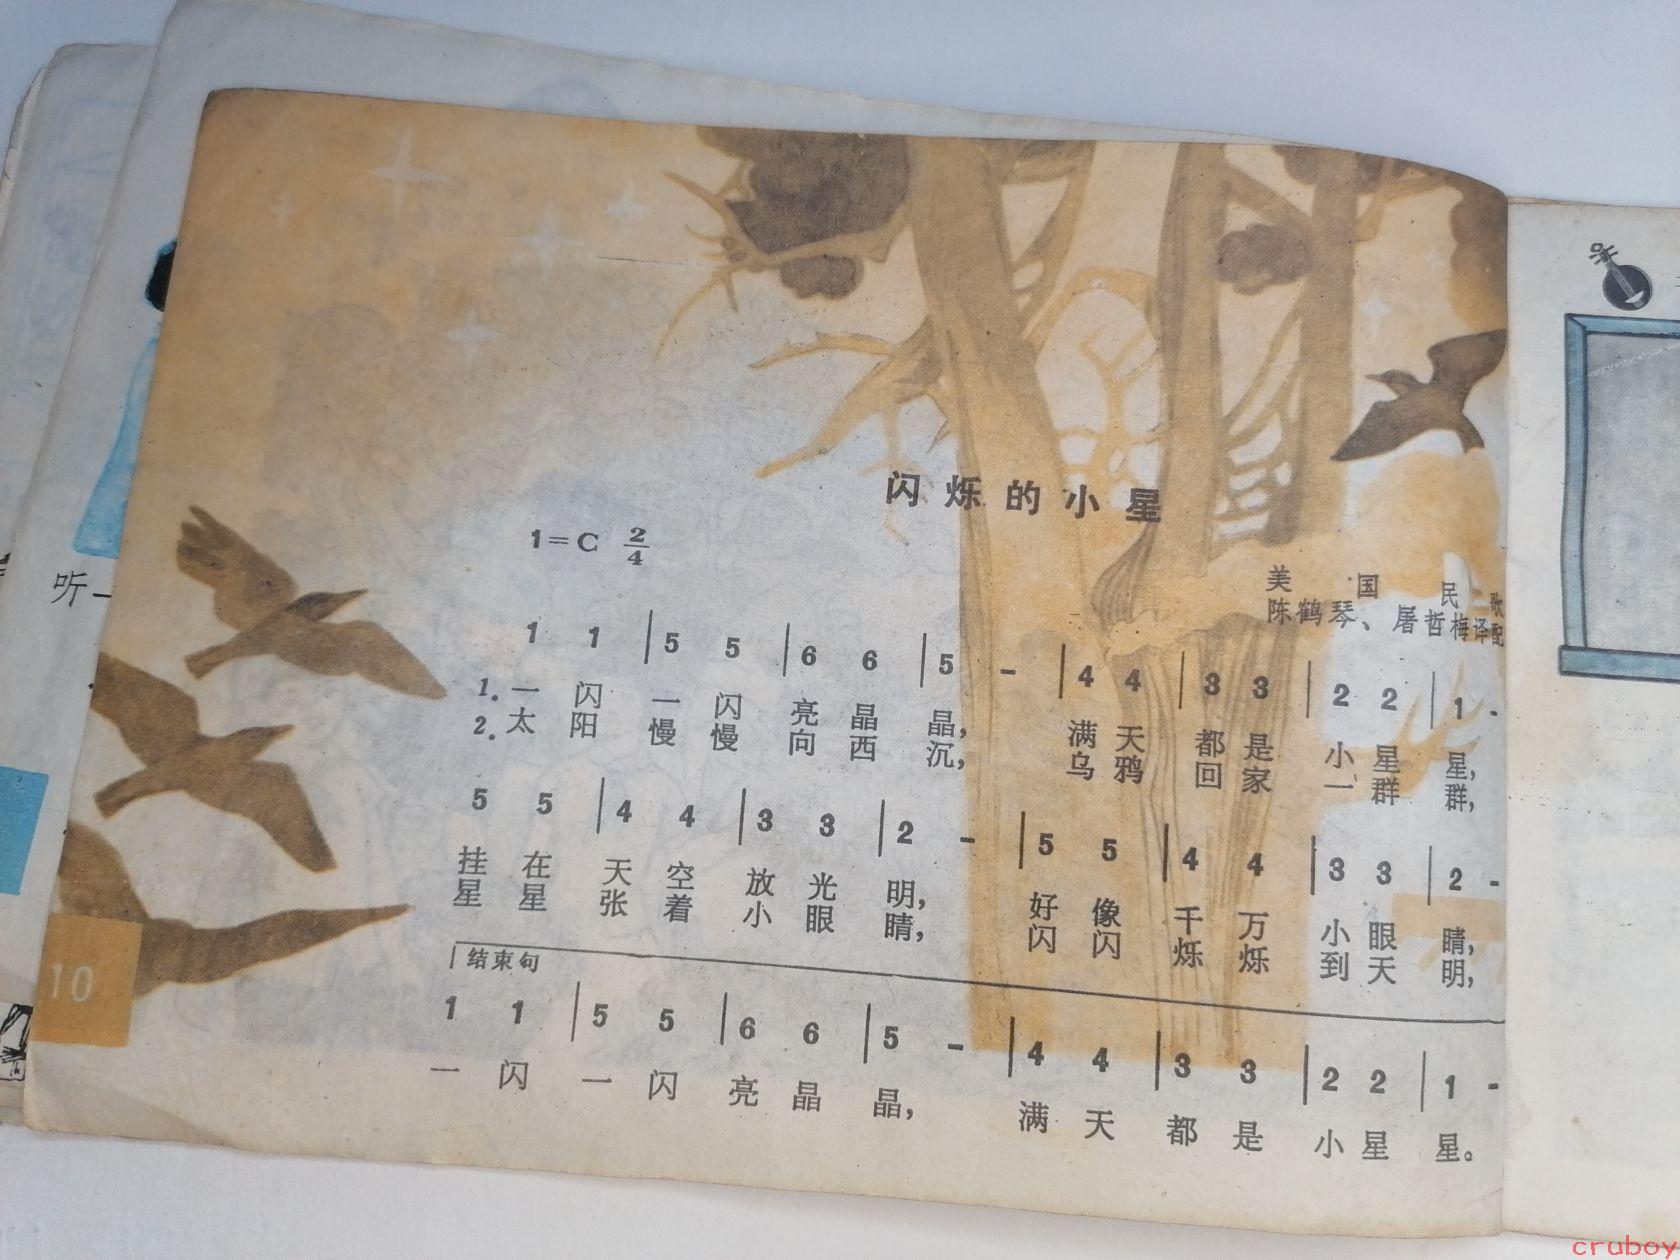 闪烁的小星
1=C 2/4
美国民歌
陈鹤琴、屠哲梅译配
1 1 | 5 5 | 6 6 | 5 - | 4 4 | 3 3 | 2 2 | 1 -
1. 一闪一闪亮晶晶， 满天都是小星星，
2. 太阳慢慢向西沉， 乌鸦回家一群群，
5 5 | 4 4 | 3 3 | 2 - | 5 5 | 4 4 | 3 3 | 2 -
挂在天空放光明， 好像千万小眼睛，
星星张着小眼睛， 闪闪烁烁到天明，
结束句
1 1 | 5 5 | 6 6 | 5 - | 4 4 | 3 3 | 2 2 | 1 -
一闪一闪亮晶晶， 满天都是小星星。
10
听一
cruboy